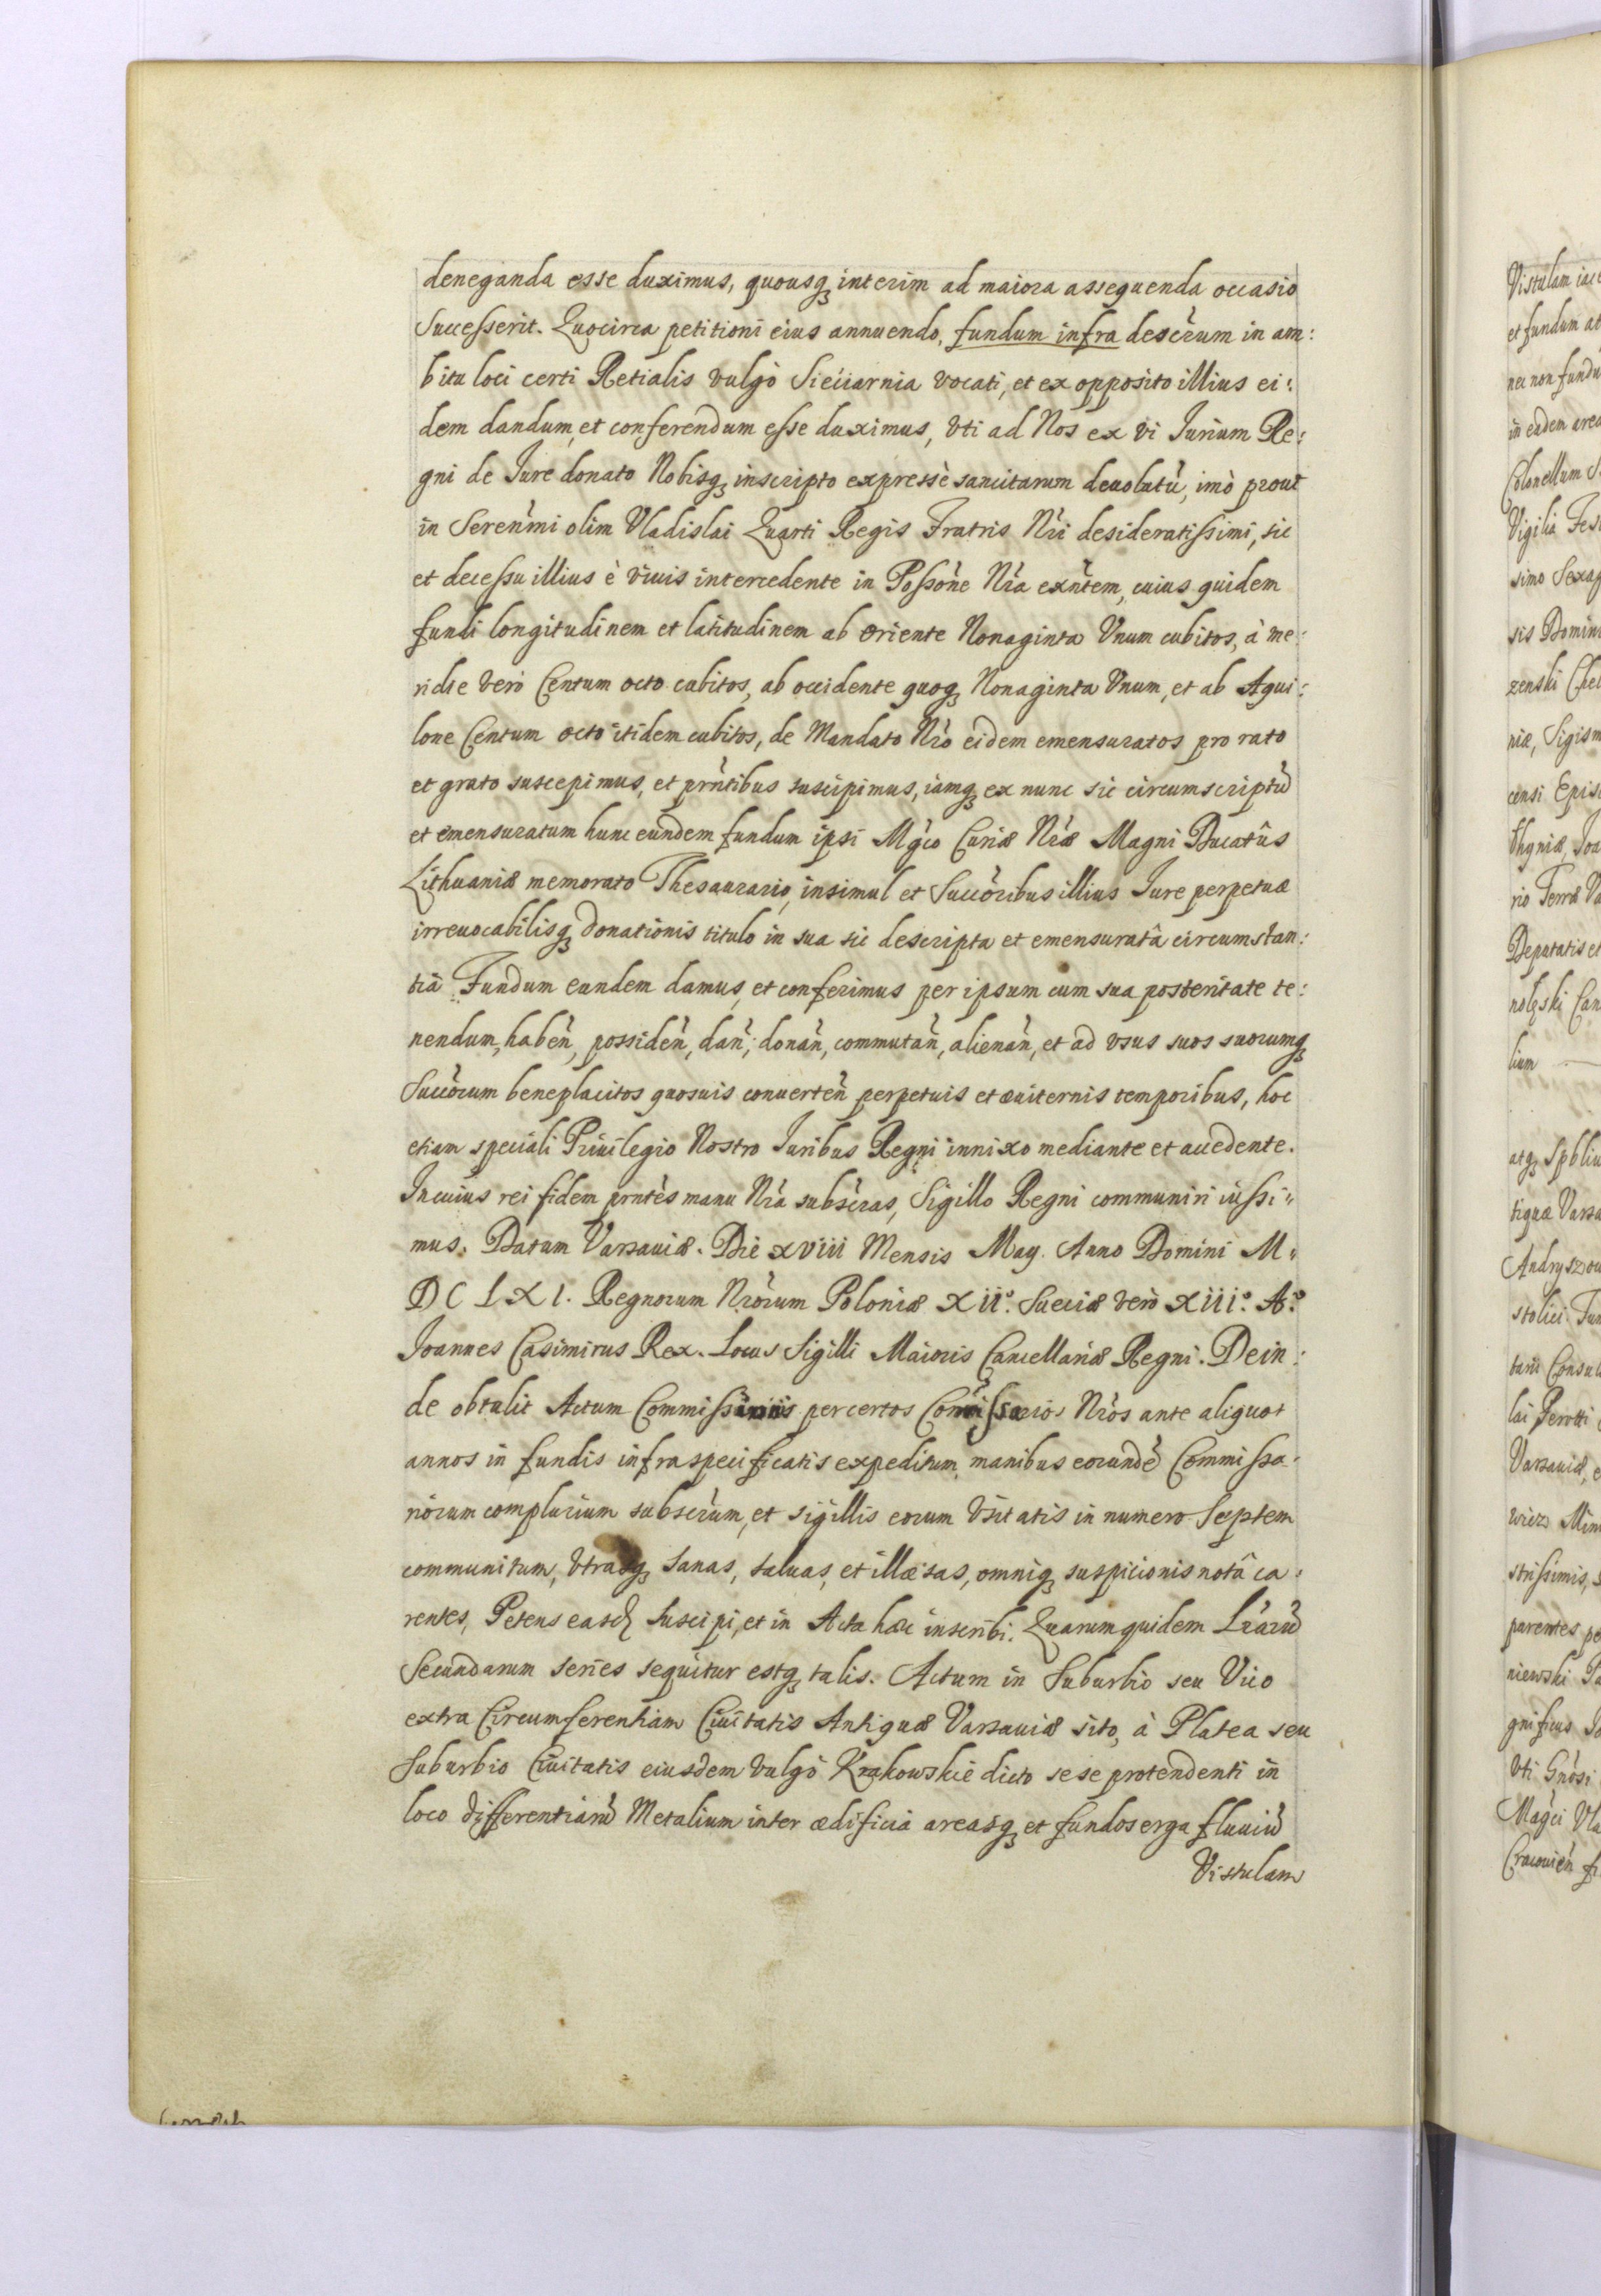 deneganda esse duximus, quousq interim ad maiora assequenda occasio
Successerit. Quocirca petitioni eius annuendo, fundum infra descrum in am:
bitu loci certi Retialis vulgò Sieciarnia vocati, et ex opposito illius ei:
dem dandum, et conferendum esse duximus, vti ad Nos ex vi Jurium Re:
gni de Jure donato Nobisq inscripto expressè sancitarum deuolutũ, imò prout
in Serenmi olim Vladislai Quarti Regis Fratris Nri desideratissimi, sic
et decessu illius è viuis intercedente in Possone Nra exntem, cuius quidem
fundi longitudinem et latitudinem ab oriente Nonaginta Vnum cubitos, à me:
ridie verò Centum octo cubitos, ab occidente quoq Nonaginta Vnum, et ab Aqui:
lone Centum octo itidem cubitos, de Mandato Nro eidem emensuratos pro rato
et grato suscepimus, et prntibus suscipimus, iamq ex nunc sic circumscriptũ
et emensuratum hunc eundem fundum ipsi Mgco Curiæ Nræ Magni Ducatûs
Lithuaniæ memorato Thesaurario, insimul et Succoribus illius Jure perpetuæ
irreuocabilisq donationis titulo in sua sic descripta et emensuratâ circumstan:
tiâ Fundum eundem damus, et conferimus per ipsum cum sua posteritate te:
nendum, haben, possiden, dan, donan, commutan, alienan, et ad vsus suos suorumq
Succorum beneplacitos quosuis conuerten perpetuis et æuiternis temporibus, hoc
etiam speciali Priuilegio Nostro Juribus Regni innixo mediante et accedente.
In cuius rei fidem prntes manu Nra subscras, Sigillo Regni communiri iussi"
mus. Datum Varsauiæ. Die xviii Mensis May. Anno Domini M"
DCLXI. Regnorum Nrorum Poloniæ XII°. Sueciæ verò XIII°. A°.
Joannes Casimirus Rex. Locus Sigilli Maioris Cancellariæ Regni. Dein:
de obtulit Actum Commissionis per certos Comissarios Nros ante aliquot
annos in fundis infraspecificatis expeditum, manibus eorundẽ Commissa:
riorum complurium subscrum, et sigillis eorum vsitatis in numero Septem
communitum, vtrasq sanas, saluas, et illæsas, omniq suspicionis notâ ca:
rentes, Petens easd suscipi, et in Acta hæc inscribi. Quarum quidem Lrarũ
Secundarum series sequitur estq talis. Actum in Suburbio seu Vico
extra Circumferentiam Ciuitatis Antiquæ Varsauiæ sito, à Platea seu
Suburbio Ciuitatis eiusdem vulgò Krakowskie dicto sese protendenti in
loco differentiarũ Metalium inter ædificia areasq et fundos erga fluuiũ
Vistulam